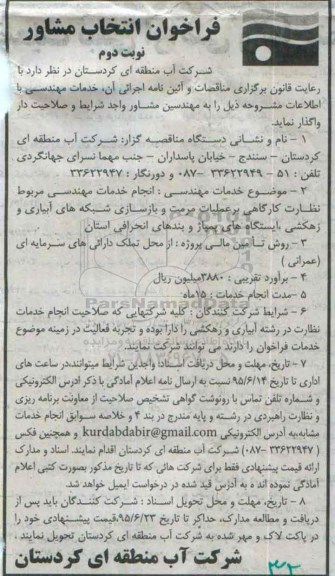 فراخوان انتخاب مشاور
نوبت دوم
شرکت آب منطقه ای کردستان در نظر دارد با
رعایت قانون برگزاری مناقصات و آئین نامه اجرائی آن، خدمات مهندسی با
اطلاعات مشروحه ذیل را به مهندسین مشاور واجد شرایط و صلاحیت دار
واگذار نماید.
۱ - نام و نشانی دستگاه مناقصه گزار: شرکت آب منطقه ای
کردستان - سنندج - خیابان پاسداران - جنب مهما نسرای جهانگردی
تلفن : ۵۱ - ۳۳۶۲۲۹۴۹ -۰۸۷ و دورنگار : ۳۳۶۲۲۹۴۷
۲ - موضوع خدمات مهندسی : انجام خدمات مهندسی مربوط
نظارت کارگاهی برعملیات مرمت و بازسازی شبکه های آبیاری و
زهکشی ،ایستگاه های پمپاژ و بندهای انحرافی استان
۳ - روش تأمین مالی پروژه : از محل تملک دارائی های سرمایه ای
(عمرانی )
۴ - برآورد تقریبی : ۳۸۸۰میلیون ریال
۵ -مدت انجام خدمات : ۱۵ماه
۶ - شرایط شرکت کنندگان : کلیه شرکتهایی که صلاحیت انجام خدمات
نظارت در رشته آبیاری و زهکشی را دارا بوده و تجربه فعالیت در زمینه موضوع
خدمات فراخوان را دارند می توانند شرکت نمایند.
۷ - تاریخ، مهلت و محل دریافت اسناد: واجدین شرایط میتوانند،در ساعت های
اداری تا تاریخ ۹۵/۶/۱۴ نسبت به ارسال نامه اعلام آمادگی با ذکر آدرس الکترونیکی
و شماره تلفن تماس با رونوشت گواهی تشخیص صلاحیت از معاونت برنامه ریزی
و نظارت راهبردی در رشته و پایه مندرج در بند ۴ و خلاصه سوابق انجام خدمات
مشابه،به آدرس الکترونیکی kurdabdabir@gmail.com و همچنین فکس
( ۳۳۶۲۲۹۴۷ -۰۸۷) شرکت آب منطقه ای کردستان اقدام نمایند. اسناد و مدارک
ارائه قیمت پیشنهادی فقط برای شرکت هائی که تا تاریخ مذکور بصورت کتبی اعلام
آمادگی نموده اند ه به آدرس قید شده در درخواست ایمیل خواهد شد.
۸ - تاریخ، مهلت و محل تحویل اسناد : شرکت کنندگان باید پس از
دریافت و مطالعه مدارک، حداکثر تا تاریخ ۹۵/۶/۲۳،قیمت پیشنهادی خود را
در پاکت لاک و مهر شده به شرکت آب منطقه ای کردستان تحویل نمایند .
شرکت آب منطقه ای کردستان
۳۲